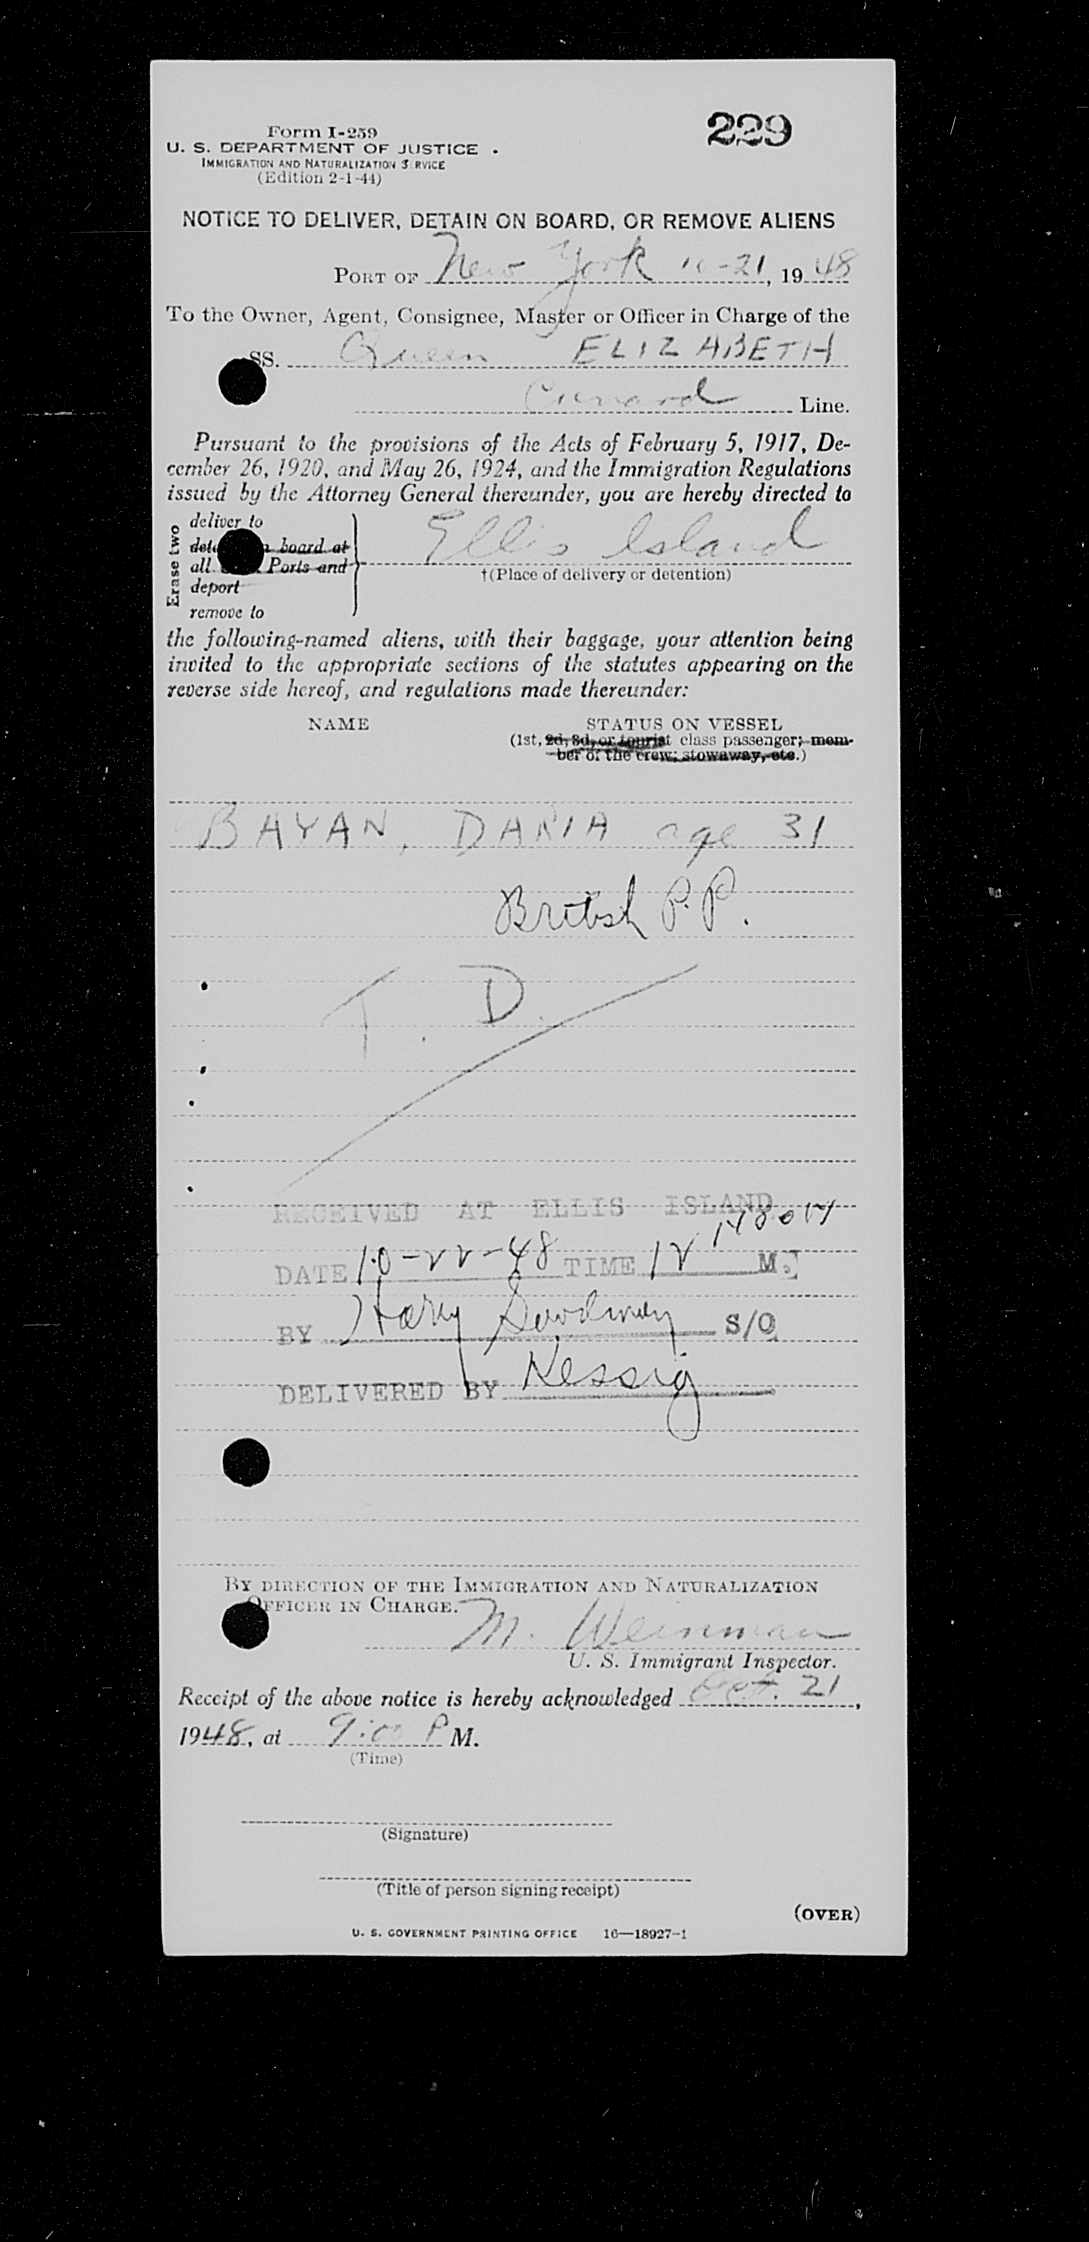 229
Form I-259
U. S. DEPARTMENT OF JUSTICE
IMMIGRATION AND NATURALIZATION SERVICE
(Edition 2-1-44)
NOTICE TO DELIVER, DETAIN ON BOARD, OR REMOVE ALIENS
PORT OF New York 10-21, 1948
To the Owner, Agent, Consignee, Master or Officer in Charge of the
SS. Queen ELIZABETH
Cunard Line.
Pursuant to the provisions of the Acts of February 5, 1917, De-
cember 26, 1920, and May 26, 1924, and the Immigration Regulations
issued by the Attorney General thereunder, you are hereby directed to
Erase two
deliver to
board at
all Ports and
deport
remove to
Ellis Island
†(Place of delivery or detention)
the following-named aliens, with their baggage, your attention being
invited to the appropriate sections of the statutes appearing on the
reverse side hereof, and regulations made thereunder:
NAME STATUS ON VESSEL
(1st, 2d, 3d, or tourist class passenger; mem-
ber of the crew; stowaway, etc.)
BAYAN, DARIA age 31
British P.P.
T. D.
RECEIVED AT ELLIS ISLAND
DATE 10-22-48 TIME 12 M.
BY Harry Goodman S/O
DELIVERED BY Kessig
BY DIRECTION OF THE IMMIGRATION AND NATURALIZATION
OFFICER IN CHARGE.
M. Weinman
U. S. Immigrant Inspector.
Receipt of the above notice is hereby acknowledged Oct. 21,
1948, at 9:00 P M.
(Time)
(Signature)
(Title of person signing receipt)
(OVER)
U. S. GOVERNMENT PRINTING OFFICE 16—18927-1